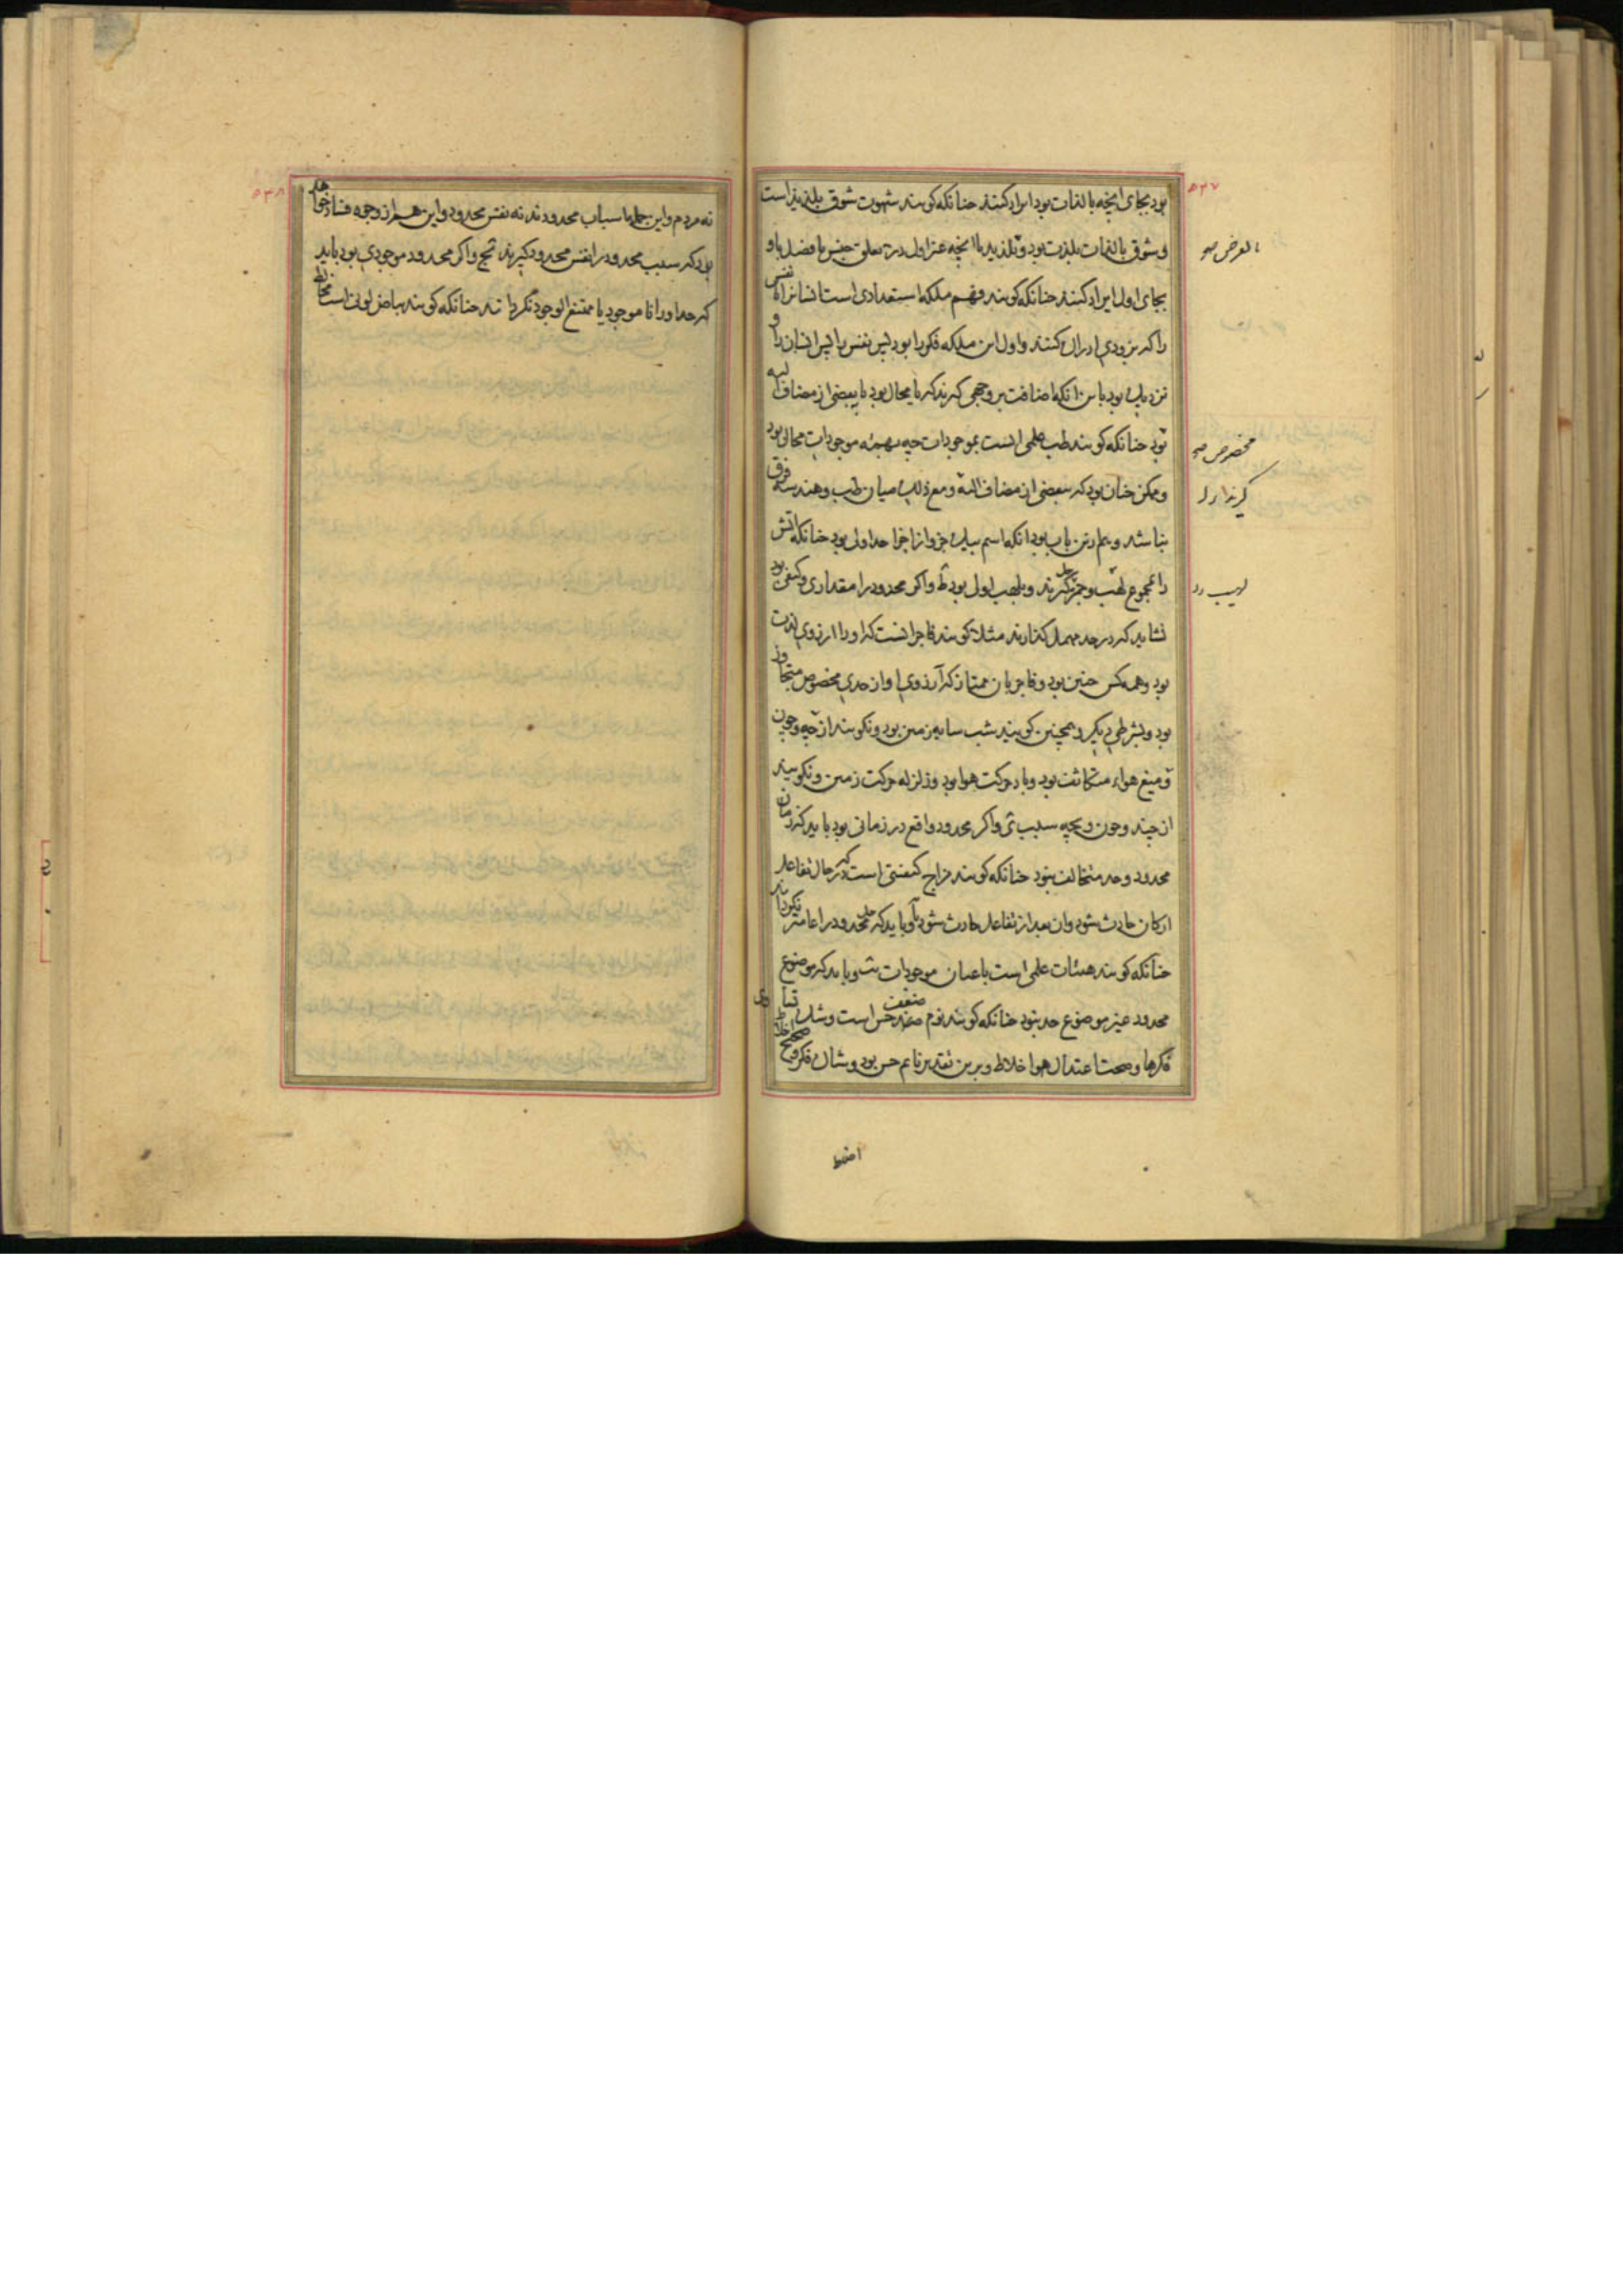 ٥٣٧
بود بجای انچه بالذات بود ایراد کنند چنانکه کویند شهوت شوق بلذیذ است
وشوق بالذات بلذت بود وبلذیذ با انچه غیر اول در تعلق جنس یا فصل باو
بالعرض صح
بجای اول ایراد کنند چنانکه کویند فهم ملکه استعدادی است انسانرا نفس
را که بزودی ادراک کنند واول این ملکه فکر را بود پس نفس را پس انسان را و
نزدیک بود باین انکه اضافت بر وجهی کیرند که یا محال بود یا ببعضی از مضاف الیه
بود چنانکه کویند طب علمی است بموجودات چه بهمه موجودات محال بود
مخصوص صح
وممکن چنان بود که ببعضی از مضاف الیه ومع ذلک میان طب وهندسه فرق
نباشد وهم درین باب بود انکه اسم یک جزو از اجزا حد اولی بود چنانکه اتش
را مجموع لهب وجمر کیرند وبلهب اول بود ط واکر محدود را مقداری وکیفی بود
نشاید که در حد مهمل کذارند مثلا کویند فاجر انست که او را ارزوی لذت
بود وهمه کس چنین بود وفاجر بان ممتاز که آرزوی او از حدی مخصوص متجاوز
بود وبشرطی دیکر وهمچنین کویند شب سایه زمین بود ونکویند از چه وچون
ومیغ هواء متکاثف بود وباد حرکت هوا بود وزلزله حرکت زمین ونکویند
از چند وچون وبچه سبب ی واکر محدود واقع در زمانی بود باید که زمان
محدود وحد متخالف نبود چنانکه کویند مزاج کیفیتی است که در حال تفاعل
ارکان حادث شود وان بعد از تفاعل حادث شود یا وباید که حد محدود را عامتر نکرداند
چنانکه کویند هیئات علمی است باعیان موجودات یب وباید که موضوع
محدود غیر موضوع حد نبود چنانکه کویند نوم ضعف حس است وشک تساوی
فکرها وصحت اعتدال هوا خلاط وبرین تقدیر نائم حس بود وشاک فکر وصحیح اخلاط
٥٣٨
نه مردم واین جمله اسباب محدودند نه نفس محدود واین هم از وجوه فساد خواهد
بود که سبب محدود را نفس محدود کیرند یج واکر محدود موجودی بود باید
که حد او را ناموجود یا ممتنع الوجود نکرداند چنانکه کویند بیاض لونی است مخالط